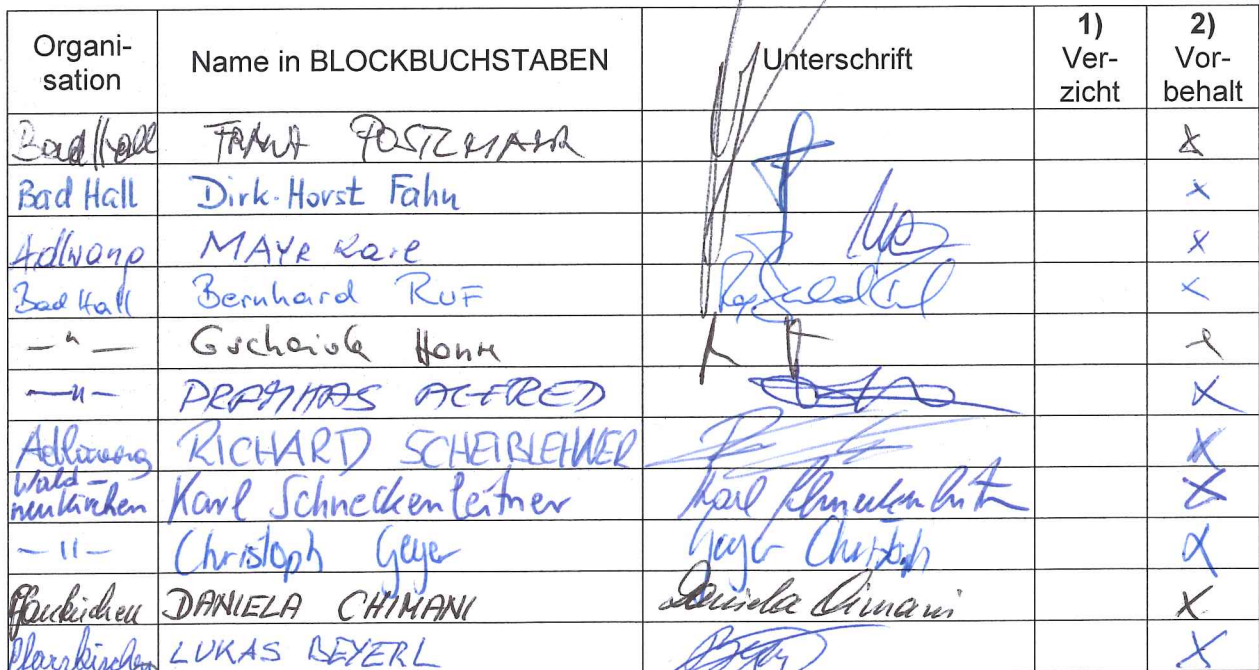 Organi-
sation
Name in BLOCKBUCHSTABEN
Unterschrift
1)
Ver-
zicht
2)
Vor-
behalt
Bad Hall FRANZ x
Bad Hall Dirk-Horst Fahn x
Adlwang MAYR Karl x
Bad Hall Bernhard RUF x
- " -
- " - ALFRED x
Adlwang RICHARD SCHEIBLEHNER x
Wald-
neukirchen Karl Schneckenleitner Karl Schneckenleitner x
- " - Christoph Geyer Geyer Christoph x
Pfarrkirchen DANIELA CHIMANI Daniela Chimani x
Pfarrkirchen LUKAS BEYERL x